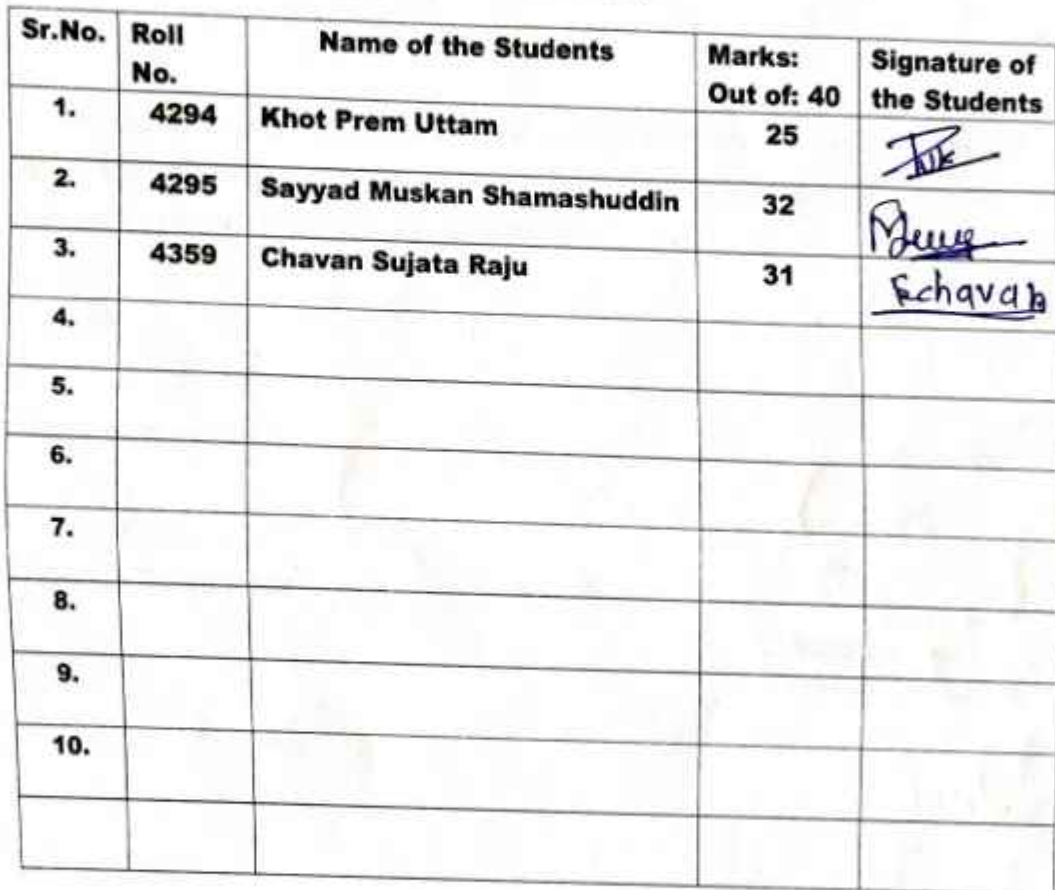 Sr.No. Roll No. Name of the Students Marks: Out of: 40 Signature of the Students
1. 4294 Khot Prem Uttam 25
2. 4295 Sayyad Muskan Shamashuddin 32
3. 4359 Chavan Sujata Raju 31 Schavan
4.
5.
6.
7.
8.
9.
10.